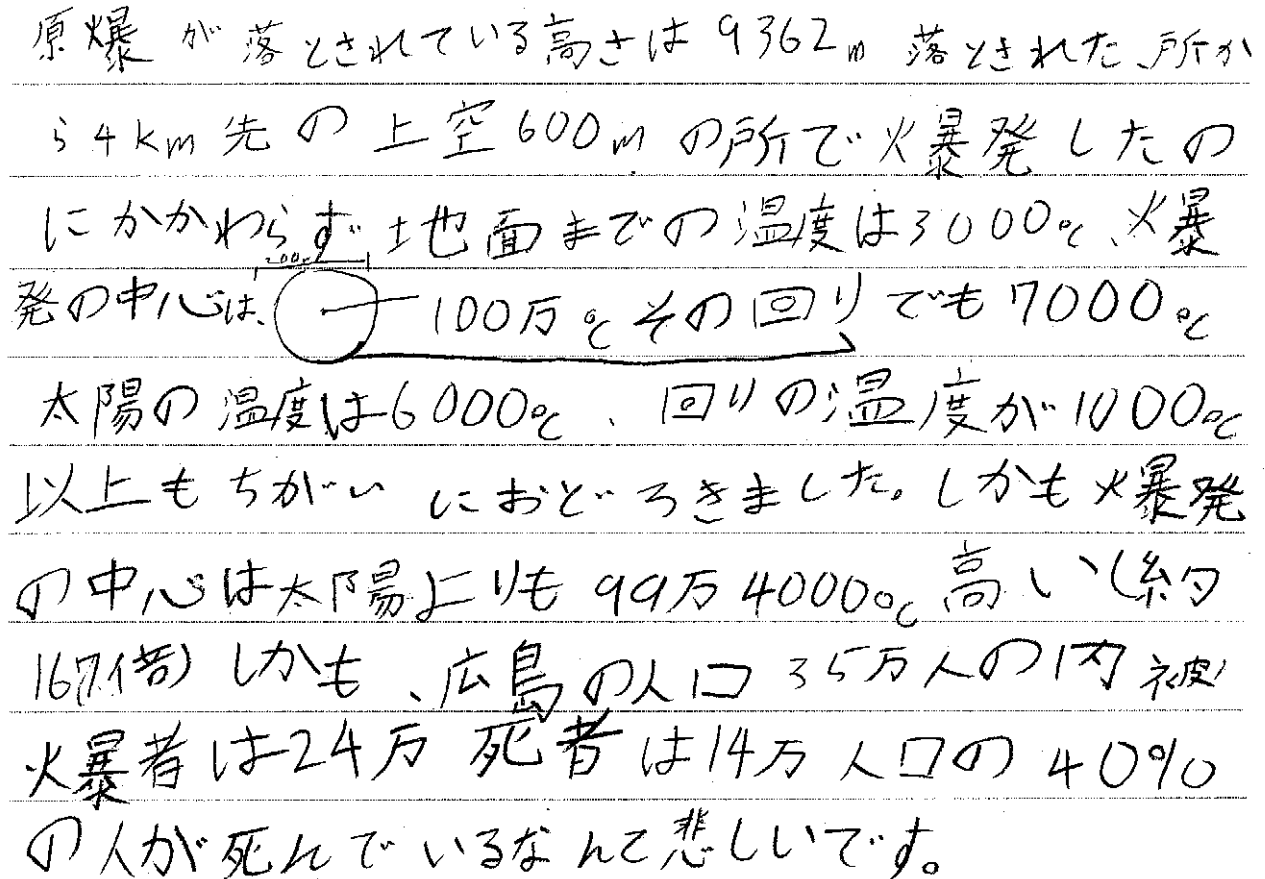 原爆が落とされている高さは9362m 落とされた所か
ら4km先の上空600mの所で爆発したの
にかかわらず地面までの温度は3000℃、爆
200m
発の中心は、100万℃その回りでも7000℃
太陽の温度は6000℃、回りの温度が1000℃
以上もちがいにおどろきました。しかも爆発
の中心は太陽よりも99万4000℃高い(約
167倍)しかも、広島の人口35万人の内被
爆者は24万死者は14万人口の40%
の人が死んでいるなんて悲しいです。